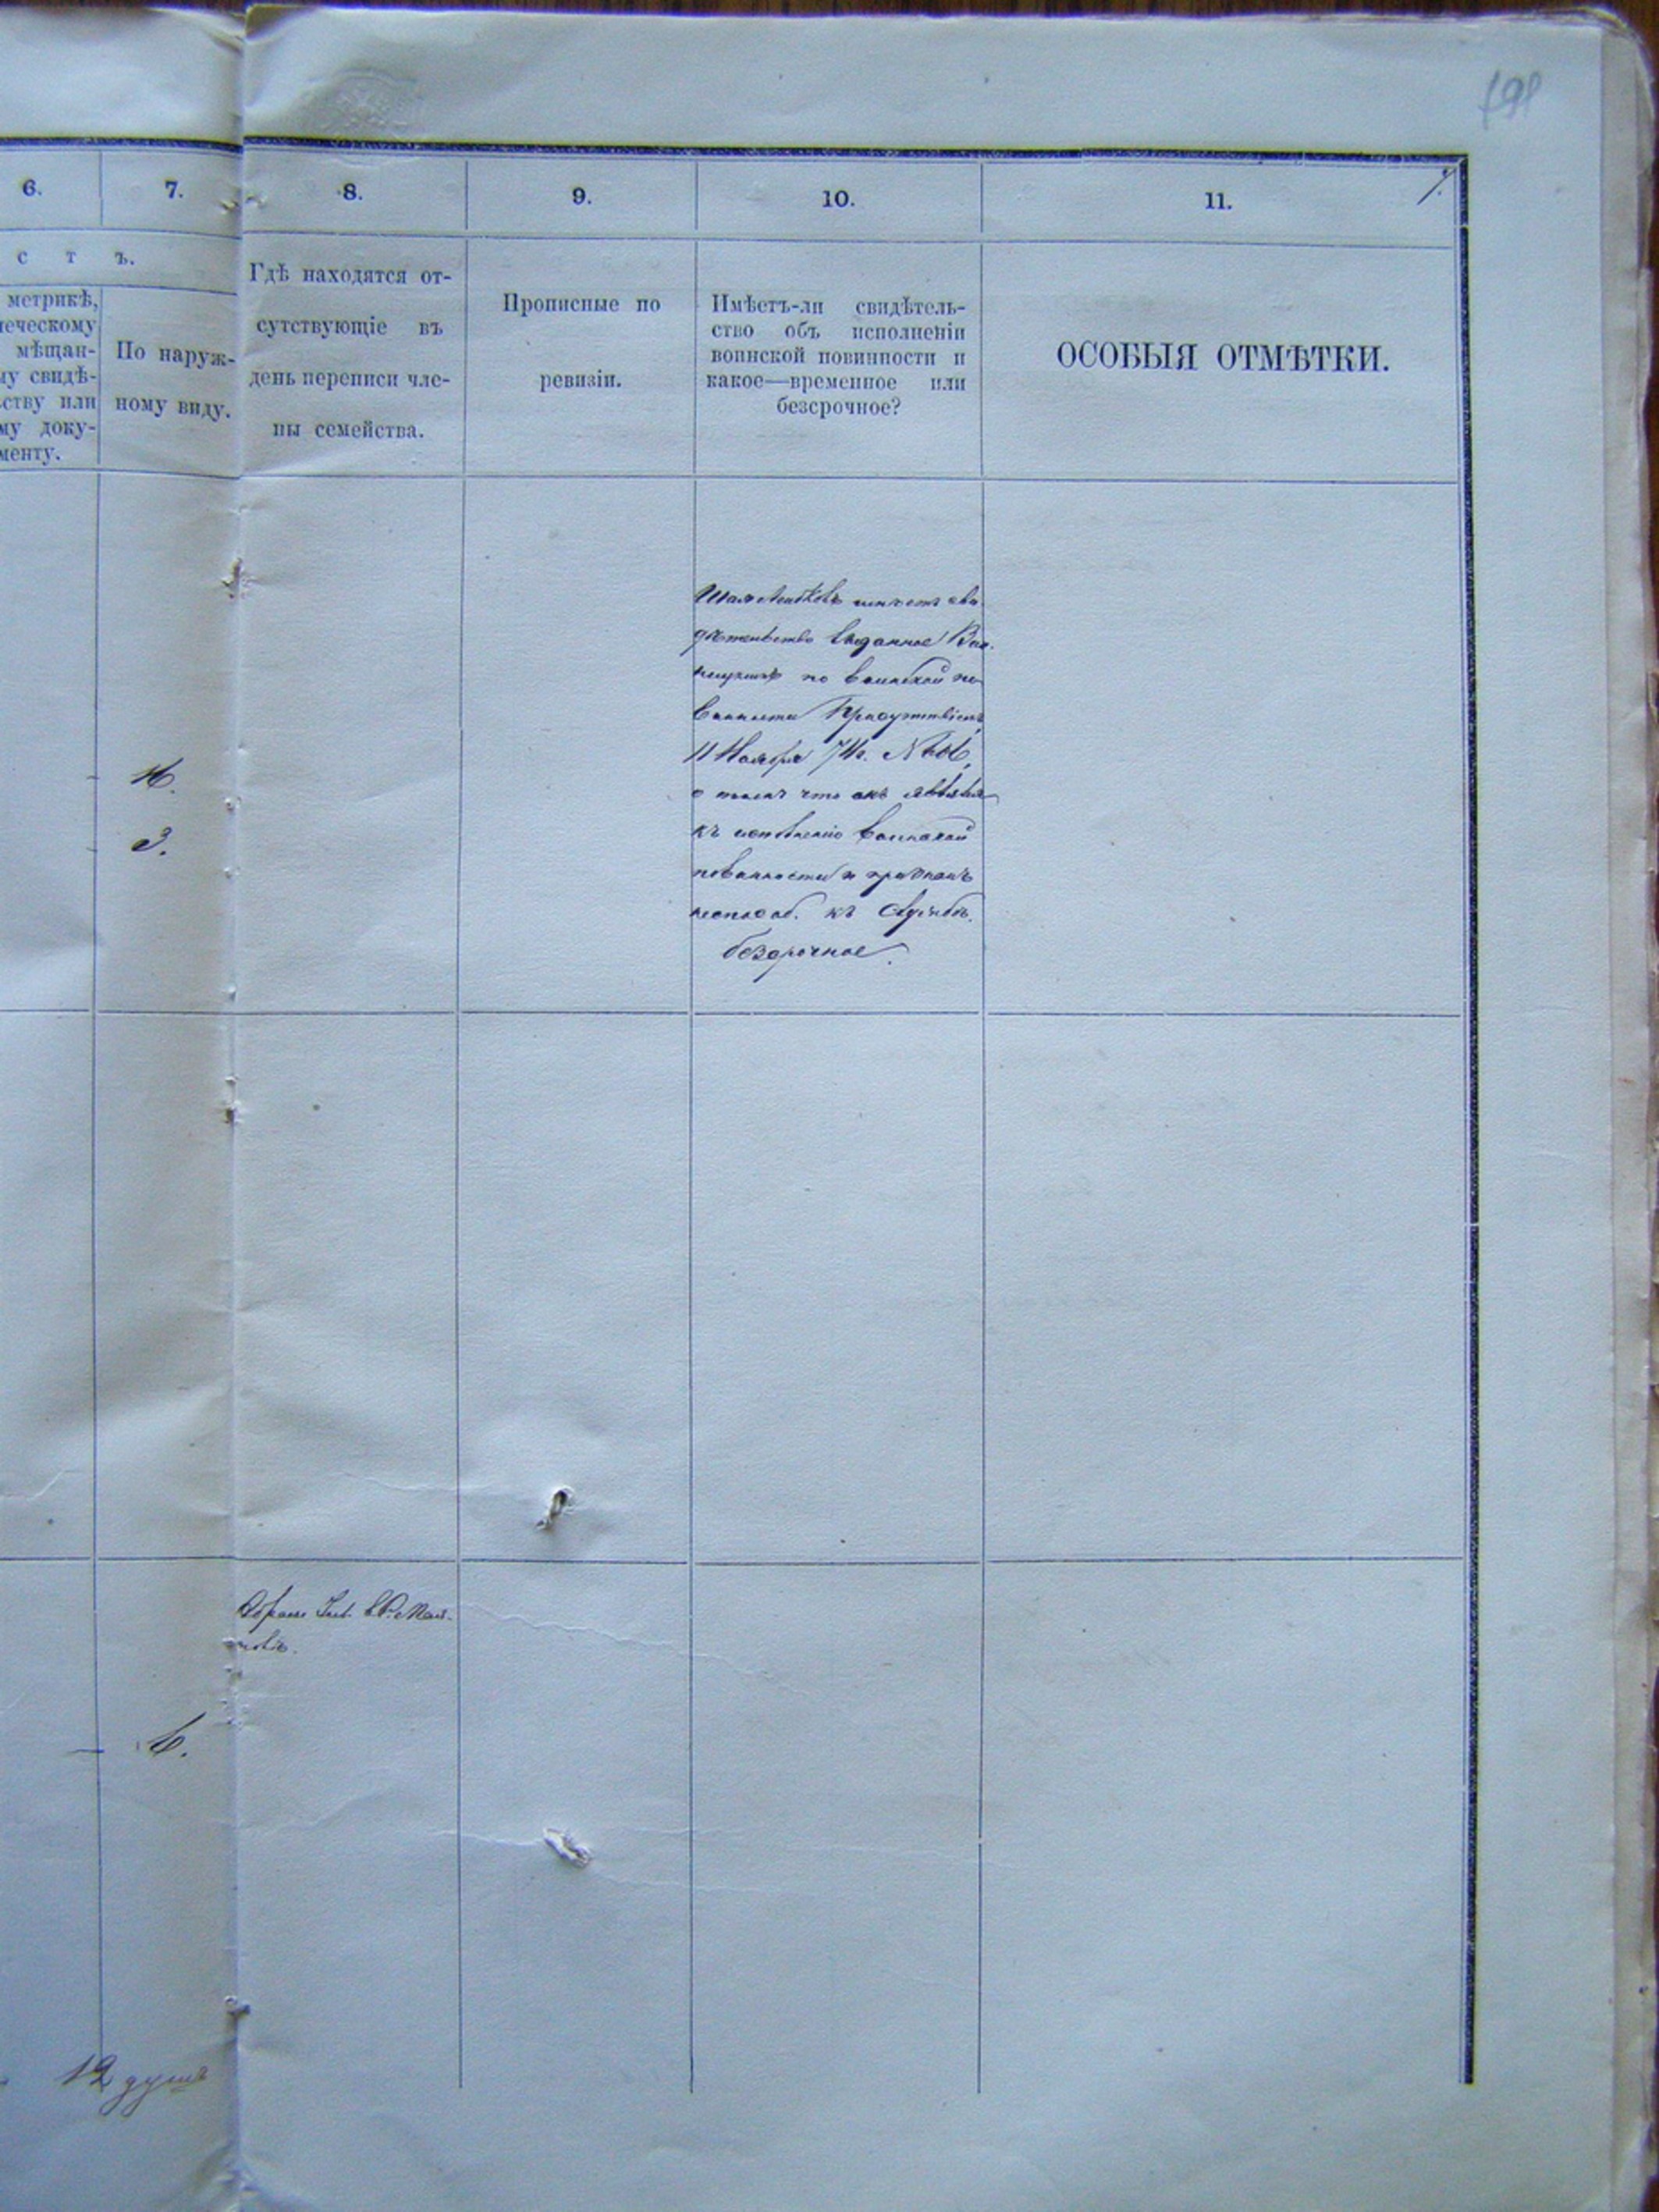 191
6.
7.
8.
9.
10.
11.
с т ъ.
метрикѣ,
ческому
мѣщан-
му свидѣ-
ству или
му доку-
менту.
По наруж-
ному виду.
Гдѣ находятся от-
сутствующіе въ
день переписи чле-
ны семейства.
Прописные по
ревизіи.
Имѣетъ-ли свидѣтель-
ство объ исполненіи
воинской повинности и
какое—временное или
безсрочное?
ОСОБЫЯ ОТМѢТКИ.
имѣетъ сви
дѣтельство выданное
по воинской по
винности Присутствіемъ
11 Ноября 74г.
о томъ что онъ являлся
къ исполненію воинской
повинности и признанъ
неспособ. къ службѣ.
безсрочное.
3.
6.
12 душъ